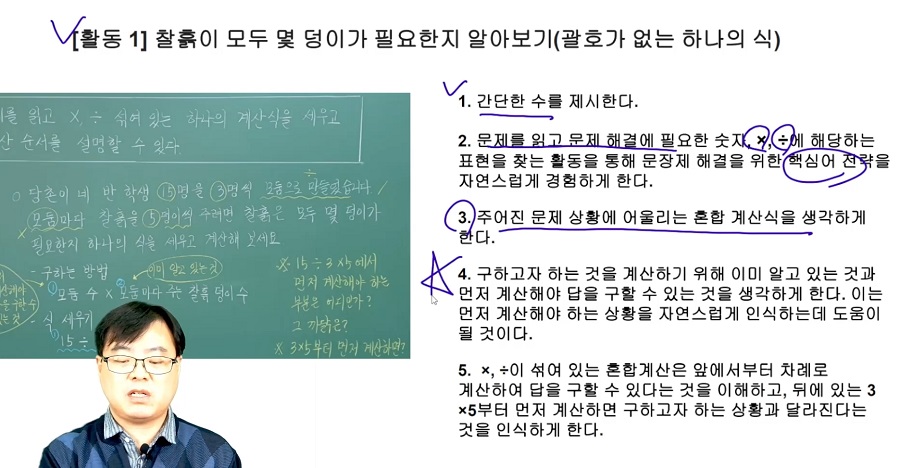 [활동 1] 찰흙이 모두 몇 덩이가 필요한지 알아보기(괄호가 없는 하나의 식)
를 읽고 ×, ÷ 섞여 있는 하나의 계산식을 세우고
산 순서를 설명할 수 있다.
○ 당촌이네 반 학생 15명을 3명씩 모둠으로 만들었습니다
÷
모둠마다 찰흙을 5덩이씩 주려면 찰흙은 모두 몇 덩이가
×
필요한지 하나의 식을 세우고 계산해 보세요
- 구하는 방법
이미 알고 있는 것
① 모둠 수 × ② 모둠마다 주는 찰흙 덩이 수
- 식 세우기
15 ÷
※ 15 ÷ 3 × 5에서
먼저 계산해야 하는
부분은 어디인가?
그 까닭은?
※ 3×5부터 먼저 계산하면?
1. 간단한 수를 제시한다.
2. 문제를 읽고 문제 해결에 필요한 숫자, ×, ÷에 해당하는
표현을 찾는 활동을 통해 문장제 해결을 위한 핵심어 전략을
자연스럽게 경험하게 한다.
3. 주어진 문제 상황에 어울리는 혼합 계산식을 생각하게
한다.
4. 구하고자 하는 것을 계산하기 위해 이미 알고 있는 것과
먼저 계산해야 답을 구할 수 있는 것을 생각하게 한다. 이는
먼저 계산해야 하는 상황을 자연스럽게 인식하는데 도움이
될 것이다.
5. ×, ÷이 섞여 있는 혼합계산은 앞에서부터 차례로
계산하여 답을 구할 수 있다는 것을 이해하고, 뒤에 있는 3
×5부터 먼저 계산하면 구하고자 하는 상황과 달라진다는
것을 인식하게 한다.